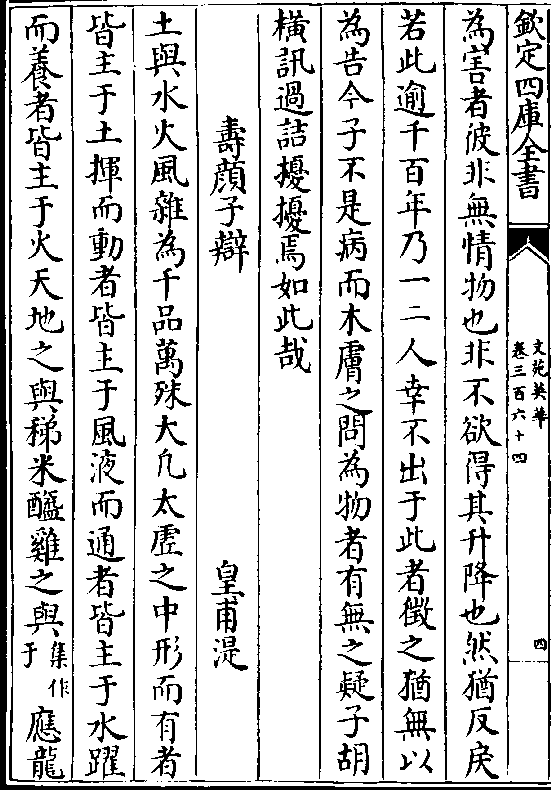 欽定四庫全書
文苑英華
卷三百六十四
四
為害者彼非無情物也非不欲得其升降也然猶反戾
若此逾千百年乃一二人幸不出于此者徵之猶無以
為告今子不是病而木膚之問為物者有無之疑子胡
橫訊過詰擾擾焉如此哉
壽顔子辯
皇甫湜
土與水火風雜為千品萬殊大凡太虛之中形而有者
皆主于土揮而動者皆主于風液而通者皆主于水躍
而養者皆主于火天地之與稊米醯雞之與集作于應龍